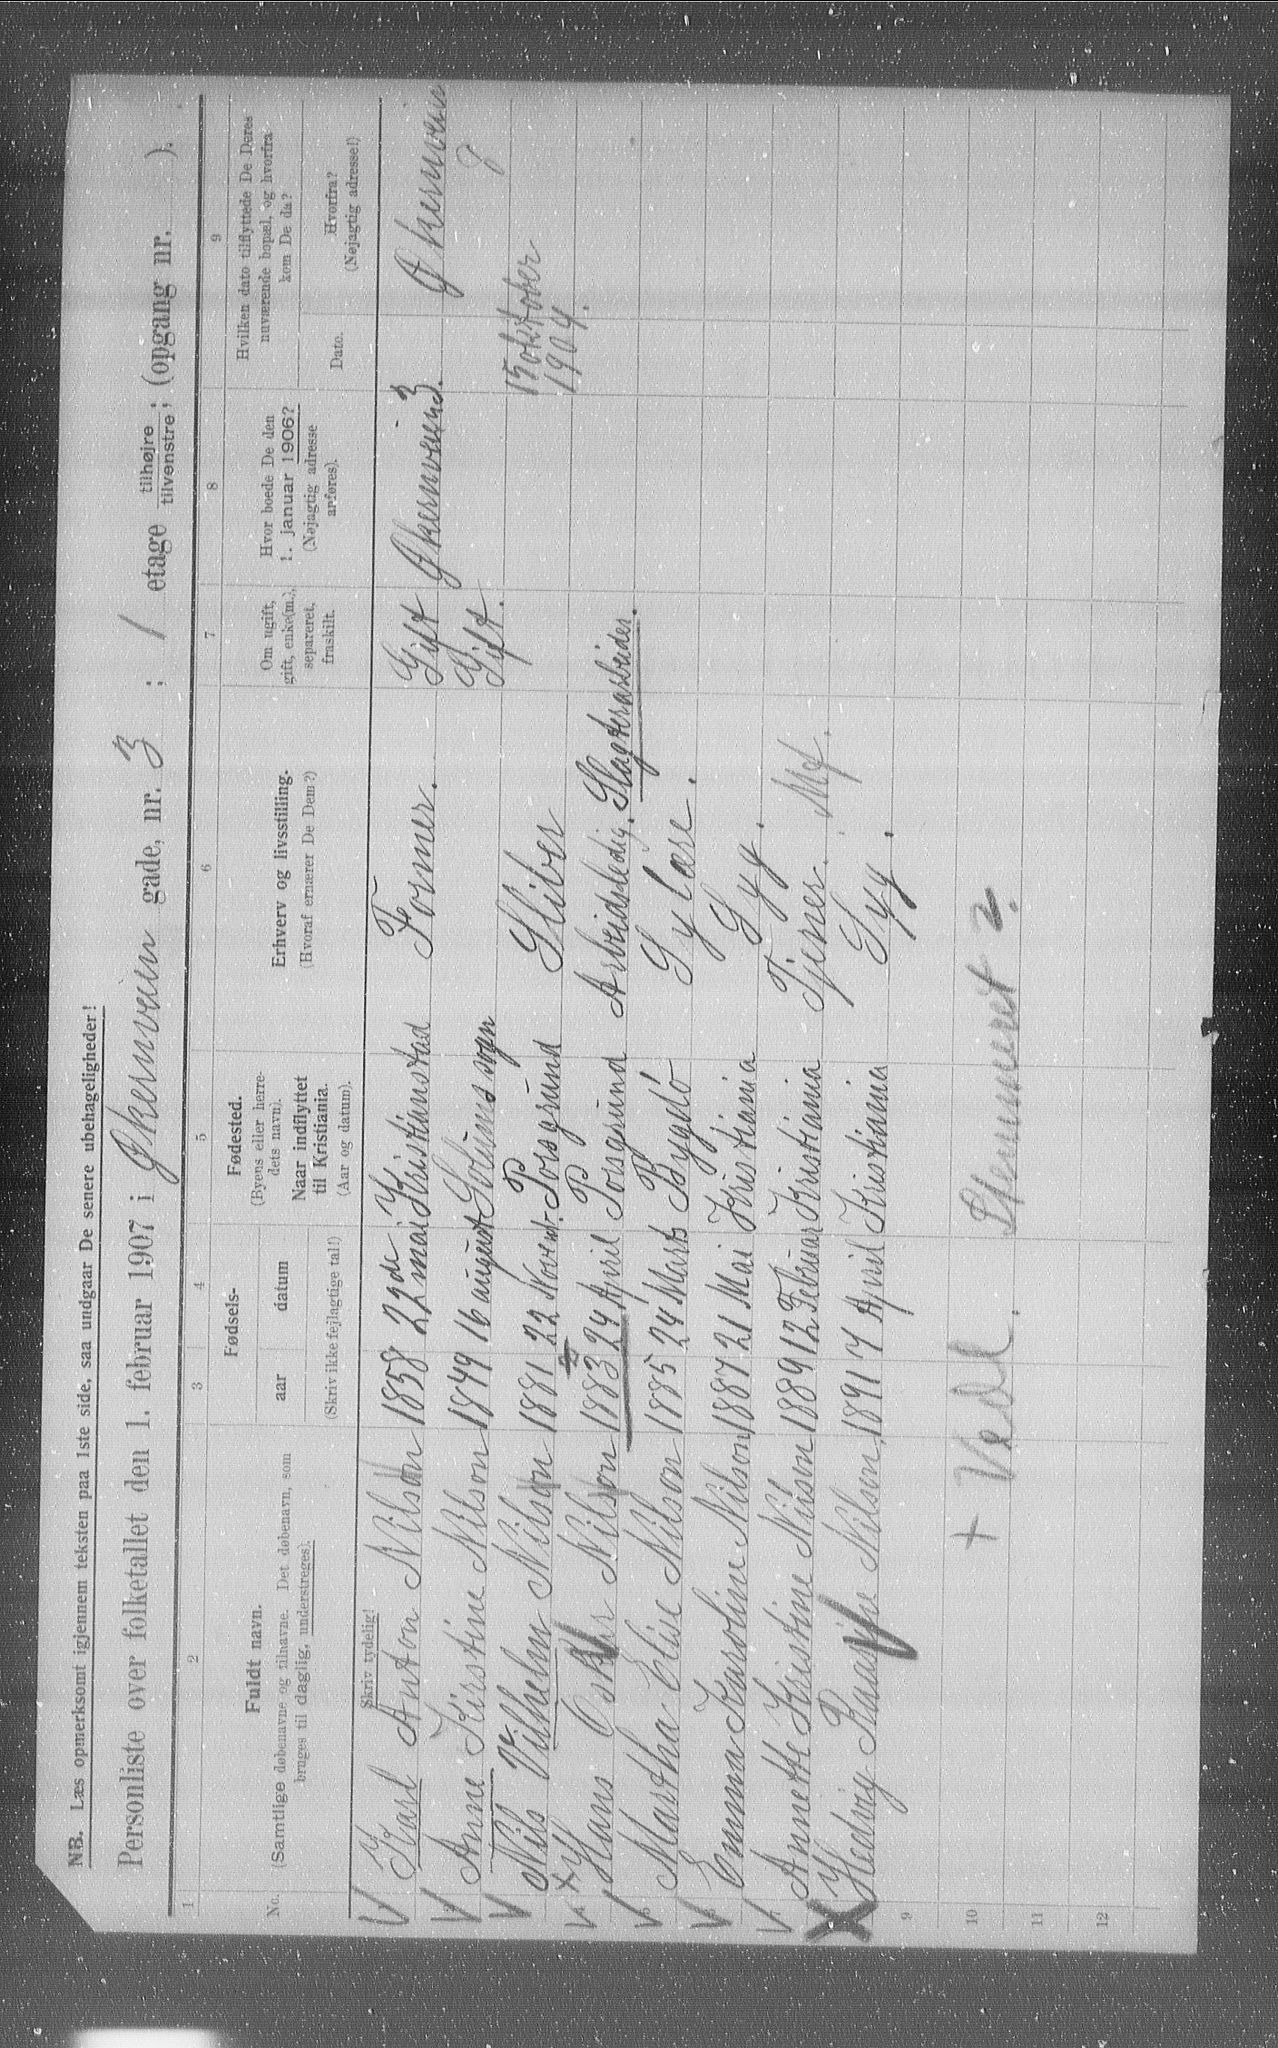 NB. Læs opmerksomt igjennem teksten paa 1ste side, saa undgaar De senere ubehageligheder!
Personliste over folketallet den 1. februar 1907 i Økernveien gade, nr. 3 ; 1 etage tilhøjre tilvenstre; (opgang nr. ).
1 2 3 4 5 6 7 8 9
No.
Fuldt navn.
(Samtlige døbenavne og tilnavne. Det døbenavn, som
bruges til daglig, understreges).
Fødsels-
aar datum
(Skriv ikke fejlagtige tal!)
Fødested.
(Byens eller herre-
dets navn).
Naar indflyttet
til Kristiania.
(Aar og datum).
Erhverv og livsstilling.
(Hvoraf ernærer De Dem?)
Om ugift,
gift, enke(m.),
separeret,
fraskilt.
Hvor boede De den
1. januar 1906?
(Nøjagtig adresse
anføres).
Hvilken dato tilflyttede De Deres
nuværende bopæl, og hvorfra
kom De da?
Dato.
Hvorfra?
(Nøjagtig adresse!)
Skriv tydelig!
V Karl Anton Nilson 1858 22de mai Kristianstad Former. Gift Økernveien 3. Økernveien
V Anne Kirstine Nilson 1849 16 august Solums sogn Gift Gift.
V Nils Vilhelm Nilson 1881 22 Novembr. Porsgrund Sliber 15 oktober 1904.
V 4 x Hans Oskar Nilson 1883 24 April Porsgrund Arbeidsledig. Slagterarbeider.
V 5 Martha Elise Nilson 1885 24 Marts Bygdö Sylære.
V 6 Emma Karoline Nilson 1887 21 Mai Kristiania Syg.
V 7 Annette Kristine Nilson 1889 12 Februar Kristiania Tjener.
X Hedvig Nilsen, 1891 7 April Kristiania Syg.
9
10 + Vedl.
11
12